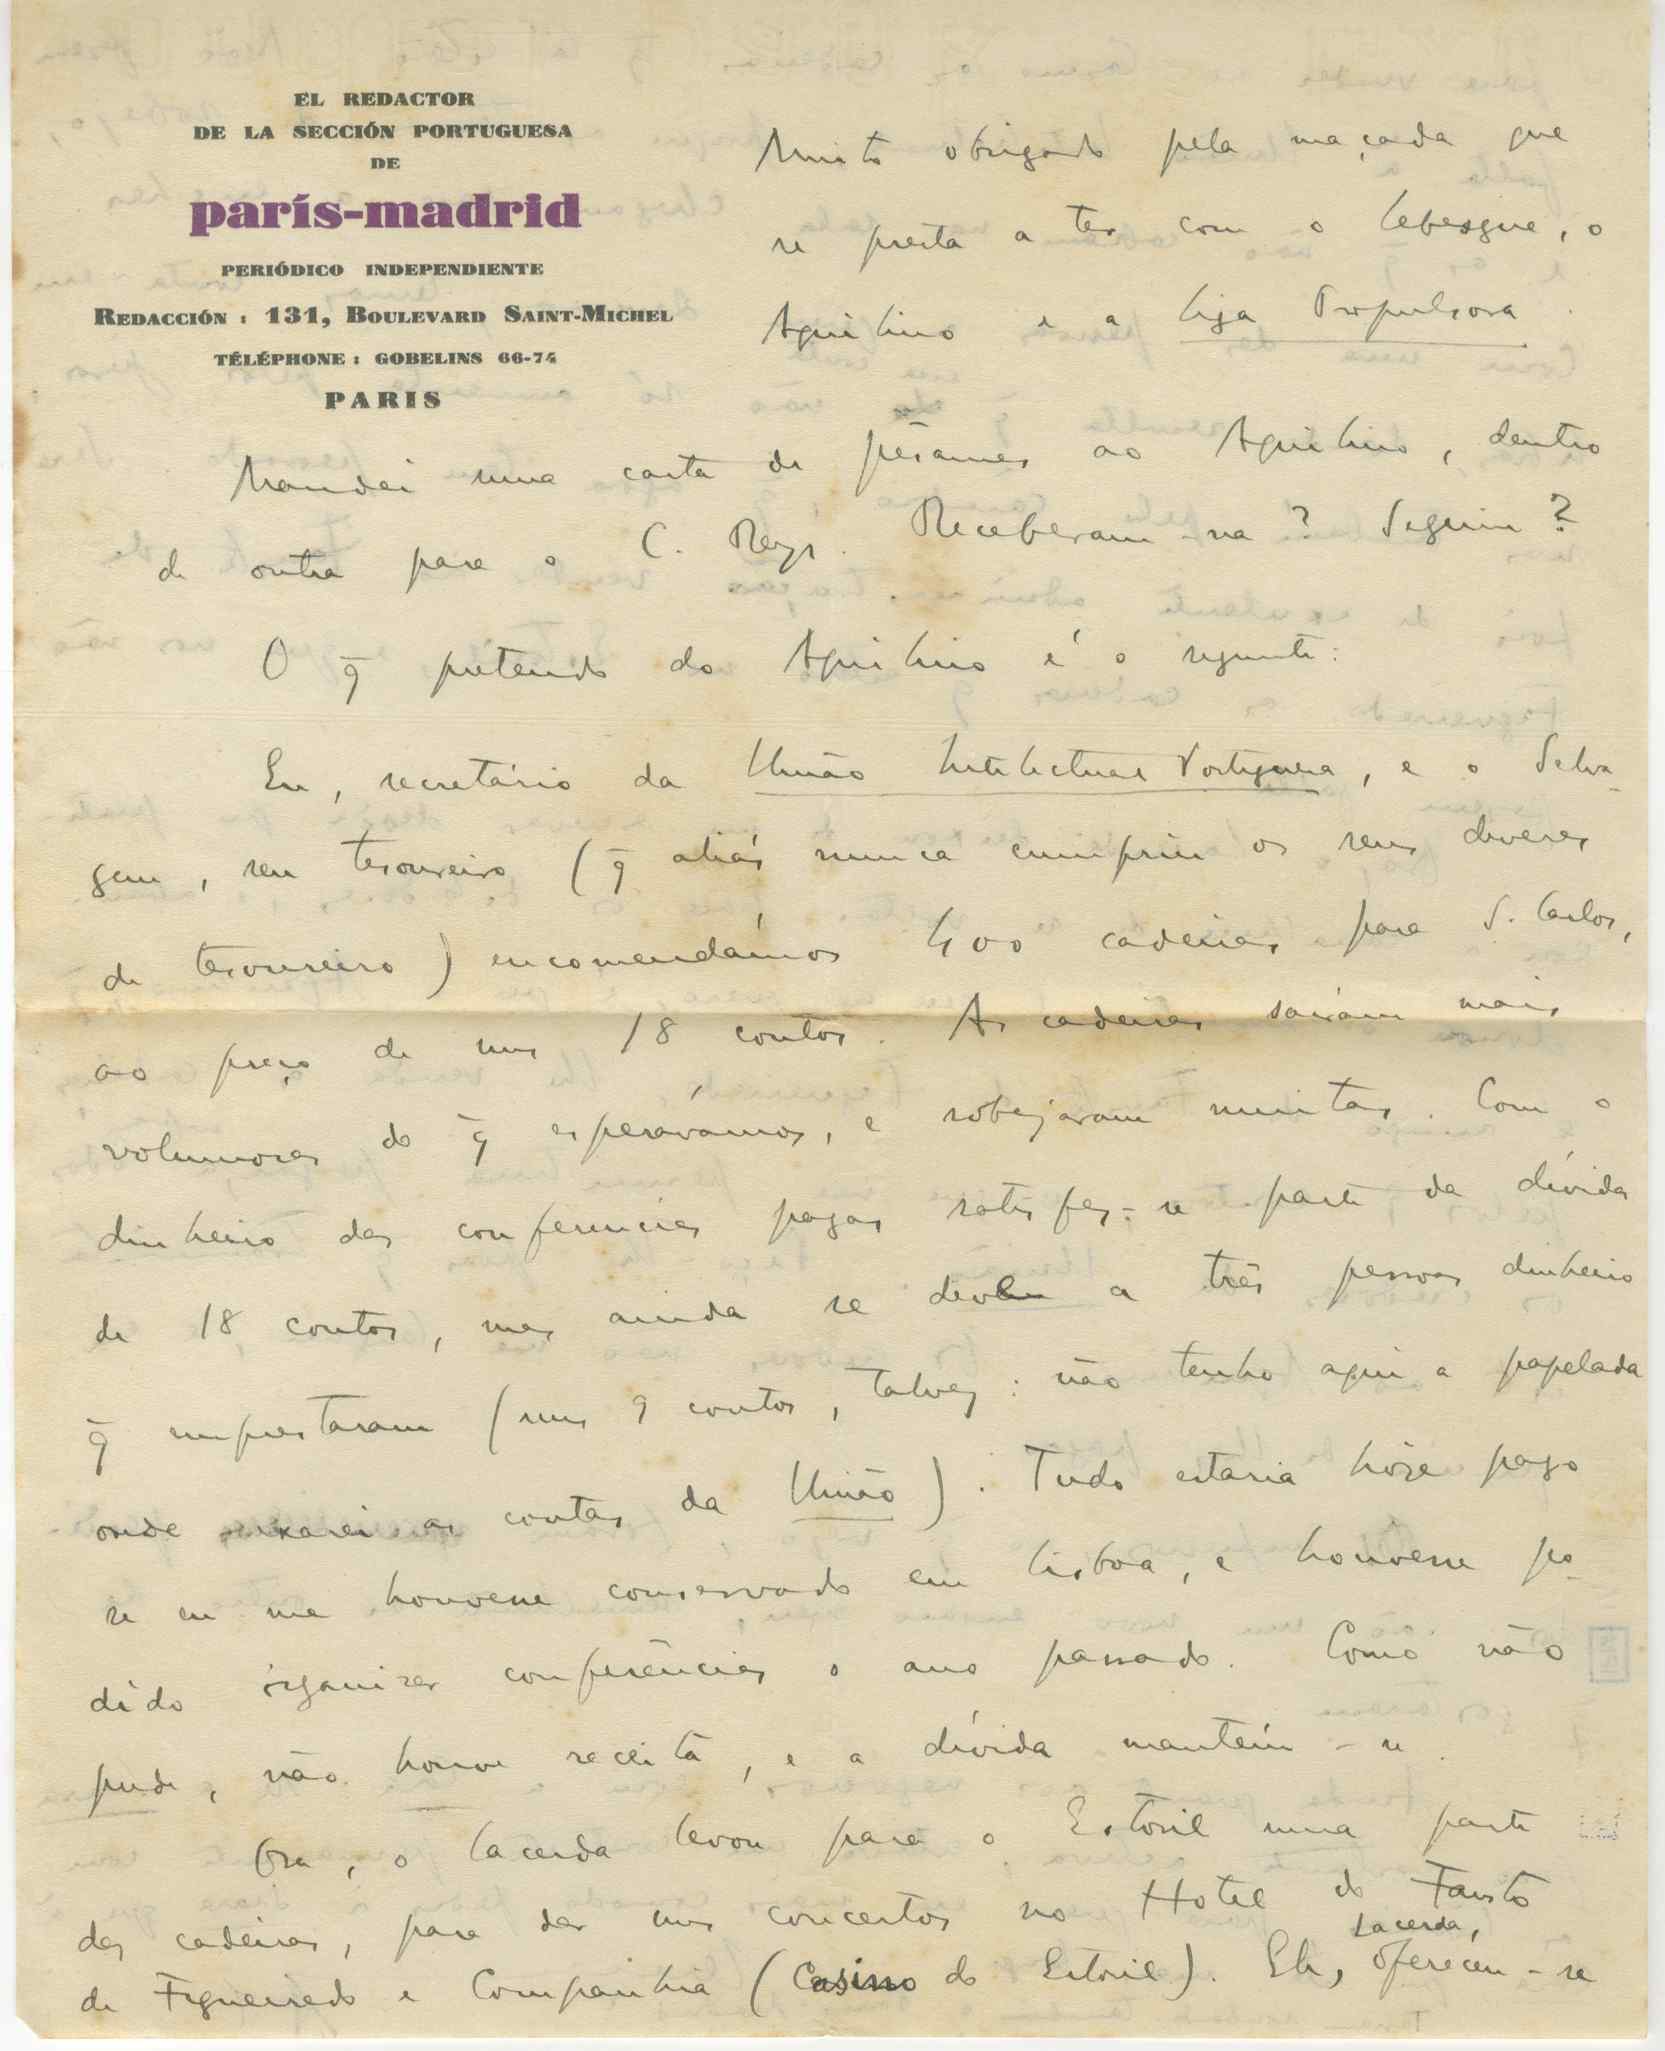 EL REDACTOR
DE LA SECCIÓN PORTUGUESA
DE
parís-madrid
PERIÓDICO INDEPENDIENTE
REDACCIÓN : 131, BOULEVARD SAINT-MICHEL
TÉLÉPHONE : GOBELINS 66-74
PARIS
Muito obrigado pela maçada que
se presta a ter com o Lebesgue, o
Aquilino e a Liga Propulsora.
Mandei uma carta de pêsames ao Aquilino, dentro
de outra para o C. Reys. Receberam-na? Seguiu?
O q̄ pretendo do Aquilino é o seguinte:
Eu, secretário da União Intelectual Portuguesa, e o Selva-
gem, seu tesoureiro (q̄ aliás nunca cumpriu os seus deveres
de tesoureiro) encomendámos 400 cadeiras para S. Carlos,
ao preço de uns 18 contos. As cadeiras saíram mais
volumosas do q̄ esperávamos, e sobejaram muitas. Com o
dinheiro das conferências pagas satisfez-se parte da dívida
de 18 contos, mas ainda se deve a três pessoas dinheiro
q̄ emprestaram (uns 9 contos, talvez: não tenho aqui a papelada
onde as contas da União). Tudo estaria hoje pago
se eu me houvesse conservado em Lisboa, e houvesse po-
dido organizar conferências o ano passado. Como não
pude, não houve receita, e a dívida mantém-se.
Ora, o Lacerda levou para o Estoril uma parte
das cadeiras, para dar uns concertos no Hotel do Fausto
de Figueiredo e Companhia (Casino do Estoril). Ele, Lacerda, ofereceu-se